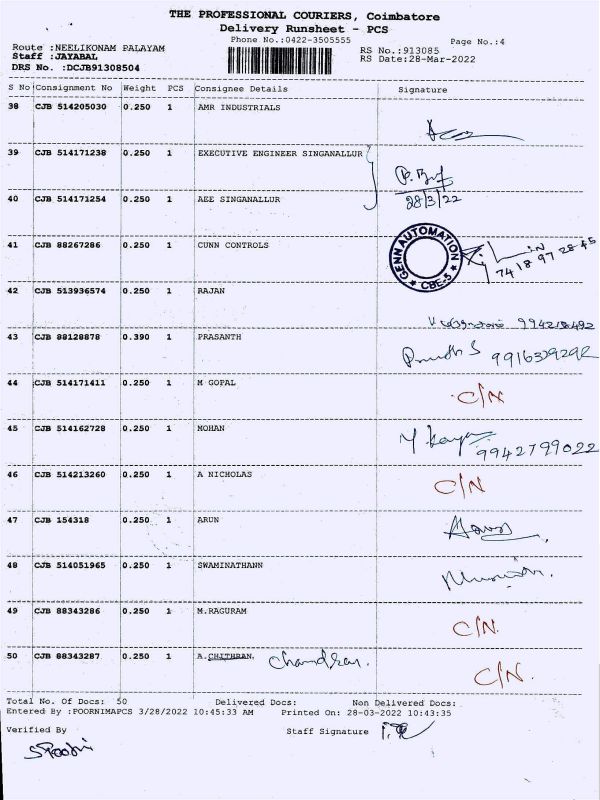 THE PROFESSIONAL COURIERS, Coimbatore
Delivery Runsheet - PCS
Phone No.:0422-3505555 Page No.:4
Route :NEELIKONAM PALAYAM RS No.:913085
Staff :JAYABAL RS Date:28-Mar-2022
DRS No. :DCJB91308504
S No Consignment No Weight PCS Consignee Details Signature
38 CJB 514205030 0.250 1 AMR INDUSTRIALS
39 CJB 514171238 0.250 1 EXECUTIVE ENGINEER SINGANALLUR
28/3/22
40 CJB 514171254 0.250 1 AEE SINGANALLUR
41 CJB 88267286 0.250 1 CUNN CONTROLS
GENN AUTOMATION
★ CBE-5 ★
74 18 97 28 45
42 CJB 513936574 0.250 1 RAJAN
43 CJB 88128878 0.390 1 PRASANTH
44 CJB 514171411 0.250 1 M GOPAL C/N
45 CJB 514162728 0.250 1 MOHAN 9942799022
46 CJB 514213260 0.250 1 A NICHOLAS C/N
47 CJB 154318 0.250 1 ARUN
48 CJB 514051965 0.250 1 SWAMINATHANN
49 CJB 88343286 0.250 1 M.RAGURAM C/N.
50 CJB 88343287 0.250 1 A.CHITHRAN. Chandran. C/N.
Total No. Of Docs: 50 Delivered Docs: Non Delivered Docs:
Entered By :POORNIMAPCS 3/28/2022 10:45:33 AM Printed On: 28-03-2022 10:43:35
Verified By Staff Signature